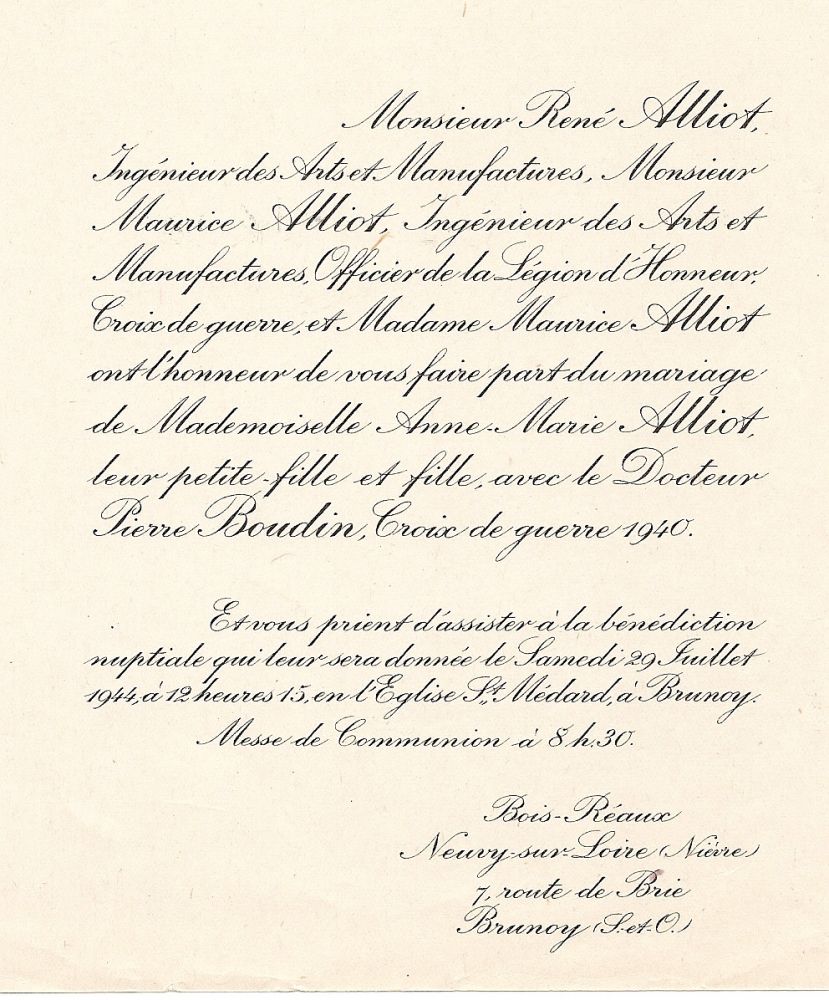 Monsieur René Alliot,
Ingénieur des Arts et Manufactures, Monsieur
Maurice Alliot, Ingénieur des Arts et
Manufactures, Officier de la Légion d'Honneur,
Croix de guerre, et Madame Maurice Alliot
ont l'honneur de vous faire part du mariage
de Mademoiselle Anne-Marie Alliot,
leur petite-fille et fille, avec le Docteur
Pierre Boudin, Croix de guerre 1940.
Et vous prient d'assister à la bénédiction
nuptiale qui leur sera donnée le Samedi 29 Juillet
1944, à 12 heures 15, en l'Eglise St Médard, à Brunoy.
Messe de Communion à 8 h. 30.
Bois-Réaux
Neuvy-sur-Loire (Nièvre)
7, route de Brie
Brunoy (S.-et-O.)